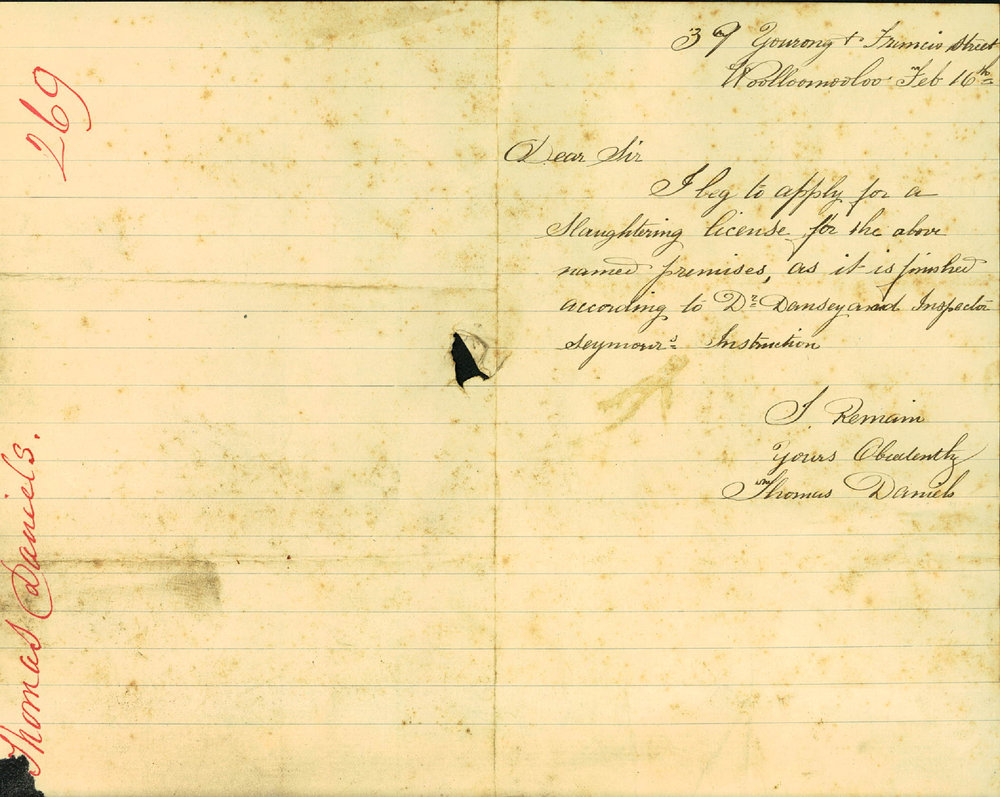 269
Thomas Daniels.
39 Yourong & Francis Street
Woolloomooloo Feb 16th
Dear Sir
I beg to apply for a
Slaughtering license, for the above
named premises, as it is finished
according to Dr Dansey and Inspector
Seymour's Instruction
I Remain
Yours Obediently
Thomas Daniels